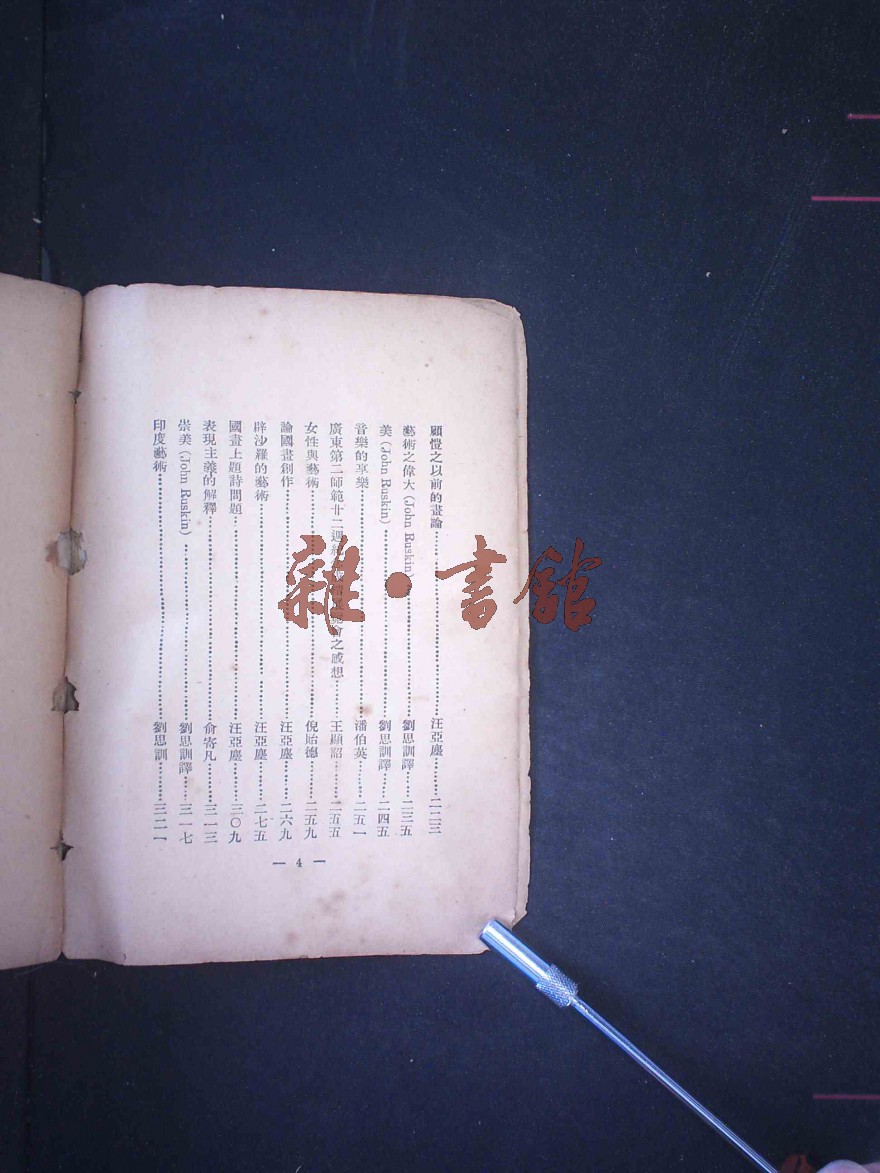 顧愷之以前的畫論……汪亞塵…二二三
藝術之偉大(John Ruskin)……劉思訓譯…二三五
美(John Ruskin)……劉思訓譯…二四五
音樂的享樂……潘伯英…二五一
廣東第二師範廿二週紀 會之感想……王顯詔…二五五
女性與藝術……倪貽德…二五九
論國畫創作……汪亞塵…二六九
辟沙羅的藝術……汪亞塵…二七五
國畫上題詩問題……汪亞塵…三〇九
表現主義的解釋……俞寄凡…三一三
崇美(John Ruskin)……劉思訓譯…三一七
印度藝術……劉思訓…三二一
— 4 —
雜·書館